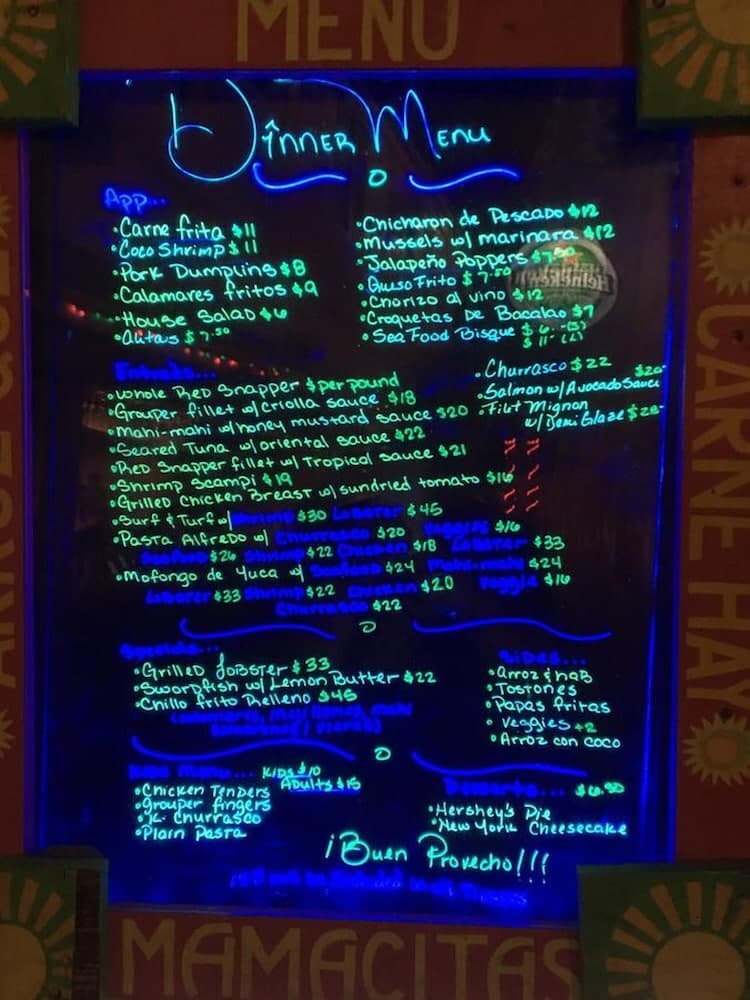 MENU
Dinner Menu
App...
• Carne frita $11
• Coco Shrimp $11
• Pork Dumplins $8
• Calamares fritos $9
• House Salad $6
• alitas $7.50
• Chicharon de Pescado $12
• Mussels w/ marinara $12
• Jalapeño Poppers $7.50
• Queso Frito $7.50
• Chorizo al vino $12
• Croquetas De Bacalao $7
• Sea Food Bisque $6 (S)
$11 (L)
Heineken
Entrees...
• Whole Red Snapper $ per pound
• Grouper fillet w/ criolla sauce $18
• Mahi-mahi w/ honey mustard sauce $20
• Seared Tuna w/ oriental sauce $22
• Red Snapper fillet w/ Tropical sauce $21
• Shrimp Scampi $19
• Grilled Chicken Breast w/ sundried tomato $16
• Surf & Turf w/ Shrimp $30 Lobster $45
• Pasta Alfredo w/ Churrasco $20 Veggies $16
Seafood $26 Shrimp $22 Chicken $18 Lobster $33
• Mofongo de Yuca w/ Seafood $24 Mahi-mahi $24
Lobster $33 Shrimp $22 Chicken $20 Veggie $16
Churrasco $22
• Churrasco $22
• Salmon w/ Avocado Sauce $20
• Filet Mignon
w/ Demi Glaze $28
Specials...
• Grilled Lobster $33
• Swordfish w/ Lemon Butter $22
• Chillo frito Relleno $45
Sides...
• Arroz & hab
• Tostones
• Papas fritas
• Veggies +2
• Arroz con coco
Kids Menu... Kids $10
Adults $15
• Chicken Tenders
• Grouper fingers
• K. Churrasco
• Plain Pasta
Desserts... $6.50
• Hershey's Pie
• New York Cheesecake
¡Buen Provecho!!!
CARNE HAY
MAMACITAS